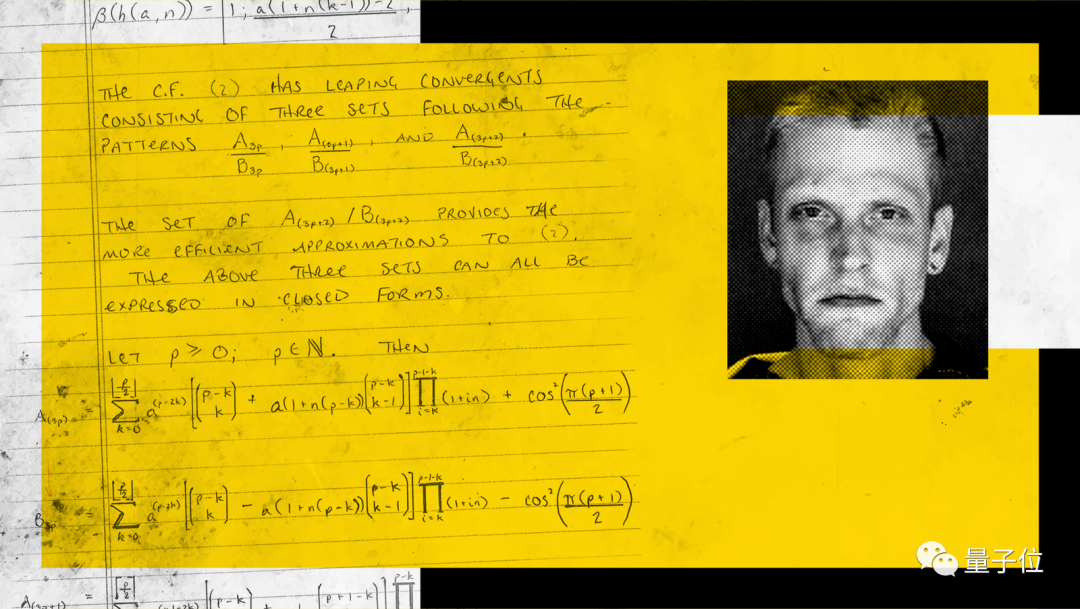 β(h(a,n)) = [1; a(1+n(k-1))-2 / 2,
THE C.F. (2) HAS LEAPING CONVERGENTS
CONSISTING OF THREE SETS FOLLOWING THE
PATTERNS A_{3p}/B_{3p}, A_{(3p+1)}/B_{(3p+1)}, AND A_{(3p+2)}/B_{(3p+2)}.
THE SET OF A_{(3p+2)}/B_{(3p+2)} PROVIDES THE
MORE EFFICIENT APPROXIMATIONS TO (2).
THE ABOVE THREE SETS CAN ALL BE
EXPRESSED IN CLOSED FORMS.
LET p ≥ 0; p ∈ ℕ. THEN
A_{(3p)} = ∑_{k=0}^{⌊p/2⌋} a^{(p-2k)} [(p-k k) + a(1+n(p-k))(p-k k-1)] ∏_{i=k}^{p-1-k} (1+in) + cos²(π(p+1)/2)
B_{3p} = ∑_{k=0}^{⌊p/2⌋} a^{(p-2k)} [(p-k k) - a(1+n(p-k))(p-k k-1)] ∏_{i=k}^{p-1-k} (1+in) - cos²(π(p+1)/2)
A_{(3p+1)} =
量子位